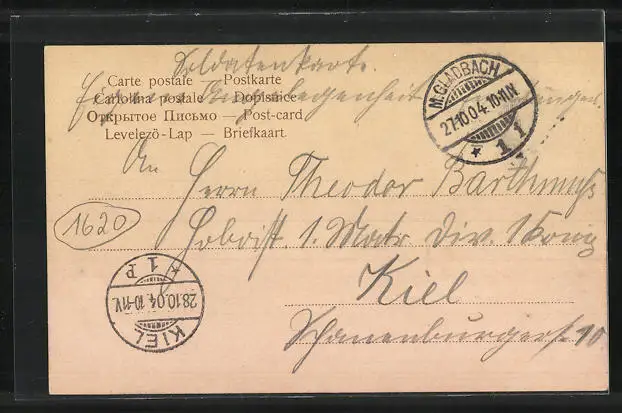 Soldatenkarte.
Carte postale — Postkarte
Cartolina postale — Dopisnice
Открытое Письмо — Post-card
Levelező-Lap — Briefkaart
M. GLADBACH
27.10.04.10-11.N.
* 1 f
An
Herrn Theodor Barthmuß
Hoboist 1. Matr. Div. 1. König
Kiel
1620
KIEL
28.10.04.10-11V.
* 1 P